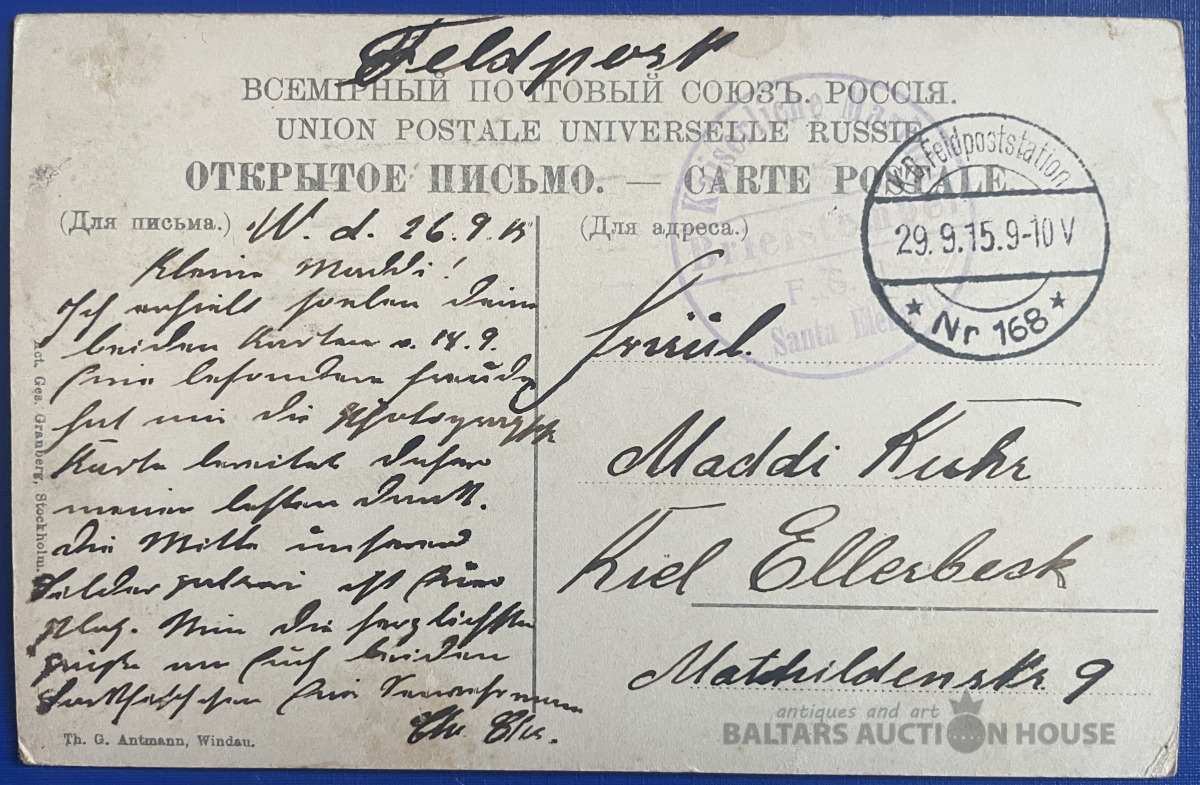 Feldpost
ВСЕМІРНЫЙ ПОЧТОВЫЙ СОЮЗЪ. РОССІЯ.
UNION POSTALE UNIVERSELLE RUSSIE
ОТКРЫТОЕ ПИСЬМО. — CARTE POSTALE.
(Для письма.)
W. d. 26.9.15
Kleine Maddi!
Ich erhielt soeben deine
beiden Karten v. 14.9.
Eine besondere Freude
hat mir die
Karte bereitet daher
meinen besten Dank.
Die Mitte unserer
ist für
Nun die herzlichsten
Grüße an Euch beiden
Eur Seemann
Act. Ges. Granberg, Stockholm.
Th. G. Antmann, Windau.
(Для адреса.)
Kaiserliche Mar
Briefstempel
Santa Elena
K.D. Feldpoststation
29.9.15.9-10V
Nr 168
Fräul.
Maddi Kuhr
Kiel Ellerbeck
Mathildenstr. 9
antiques and art
BALTARS AUCTION HOUSE